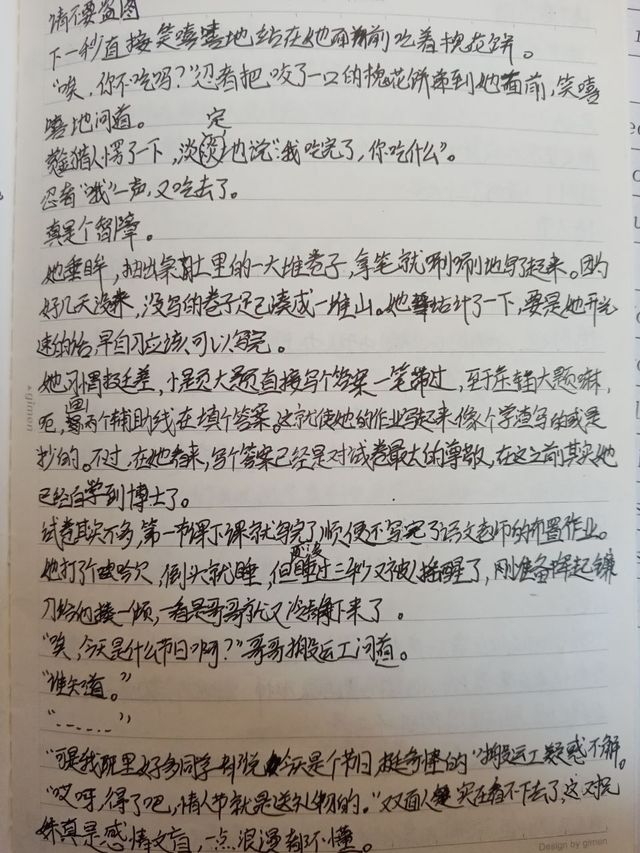 请不要盗图
下一秒直接笑嘻嘻地站在她面前吃着槐花饼。
“唉，你不吃吗？”忍者把咬了一口的槐花饼凑到她面前，笑嘻
嘻地问道。 定
猎人愣了一下，淡淡地说“我吃完了，你吃什么”。
忍者“哦”一声，又吃去了。
真是个智障。
她垂眸，抽出桌肚里的一大堆卷子，拿笔就唰唰地写了起来。因为
好几天没来，没写的卷子足已凑成一堆山。她估计了一下，要是她开光
速的话，早自习应该可以写完。
她习惯极差，但是大题直接写个答案一笔带过，至于压轴大题嘛，
呃，画两个辅助线在填个答案。这就使她的作业写起来像个学渣写的或是
抄的。不过，在她看来，写个答案已经是对试卷最大的尊敬，在这之前其实她
已经自学到博士了。
试卷其实不多，第一节课下课就写完了，顺便还写完了语文老师的布置作业。
她打了个哈欠，倒头就睡，但睡没过二秒又被人摇醒了，刚准备挥起镰
刀给他来一顿，一看是哥哥就又冷静下来了。
“唉，今天是什么节日啊？”哥哥搬运工问道。
“谁知道。”
“------”
“可是我班里好多同学都说今天是个节日，挺奇怪的”搬运工疑惑不解。
“哎呀，得了吧，情人节就是送礼物的。”双面人实在看不下去了，这对兄
妹真是感情文盲，一点浪漫都不懂。
gimon
Design by gimon